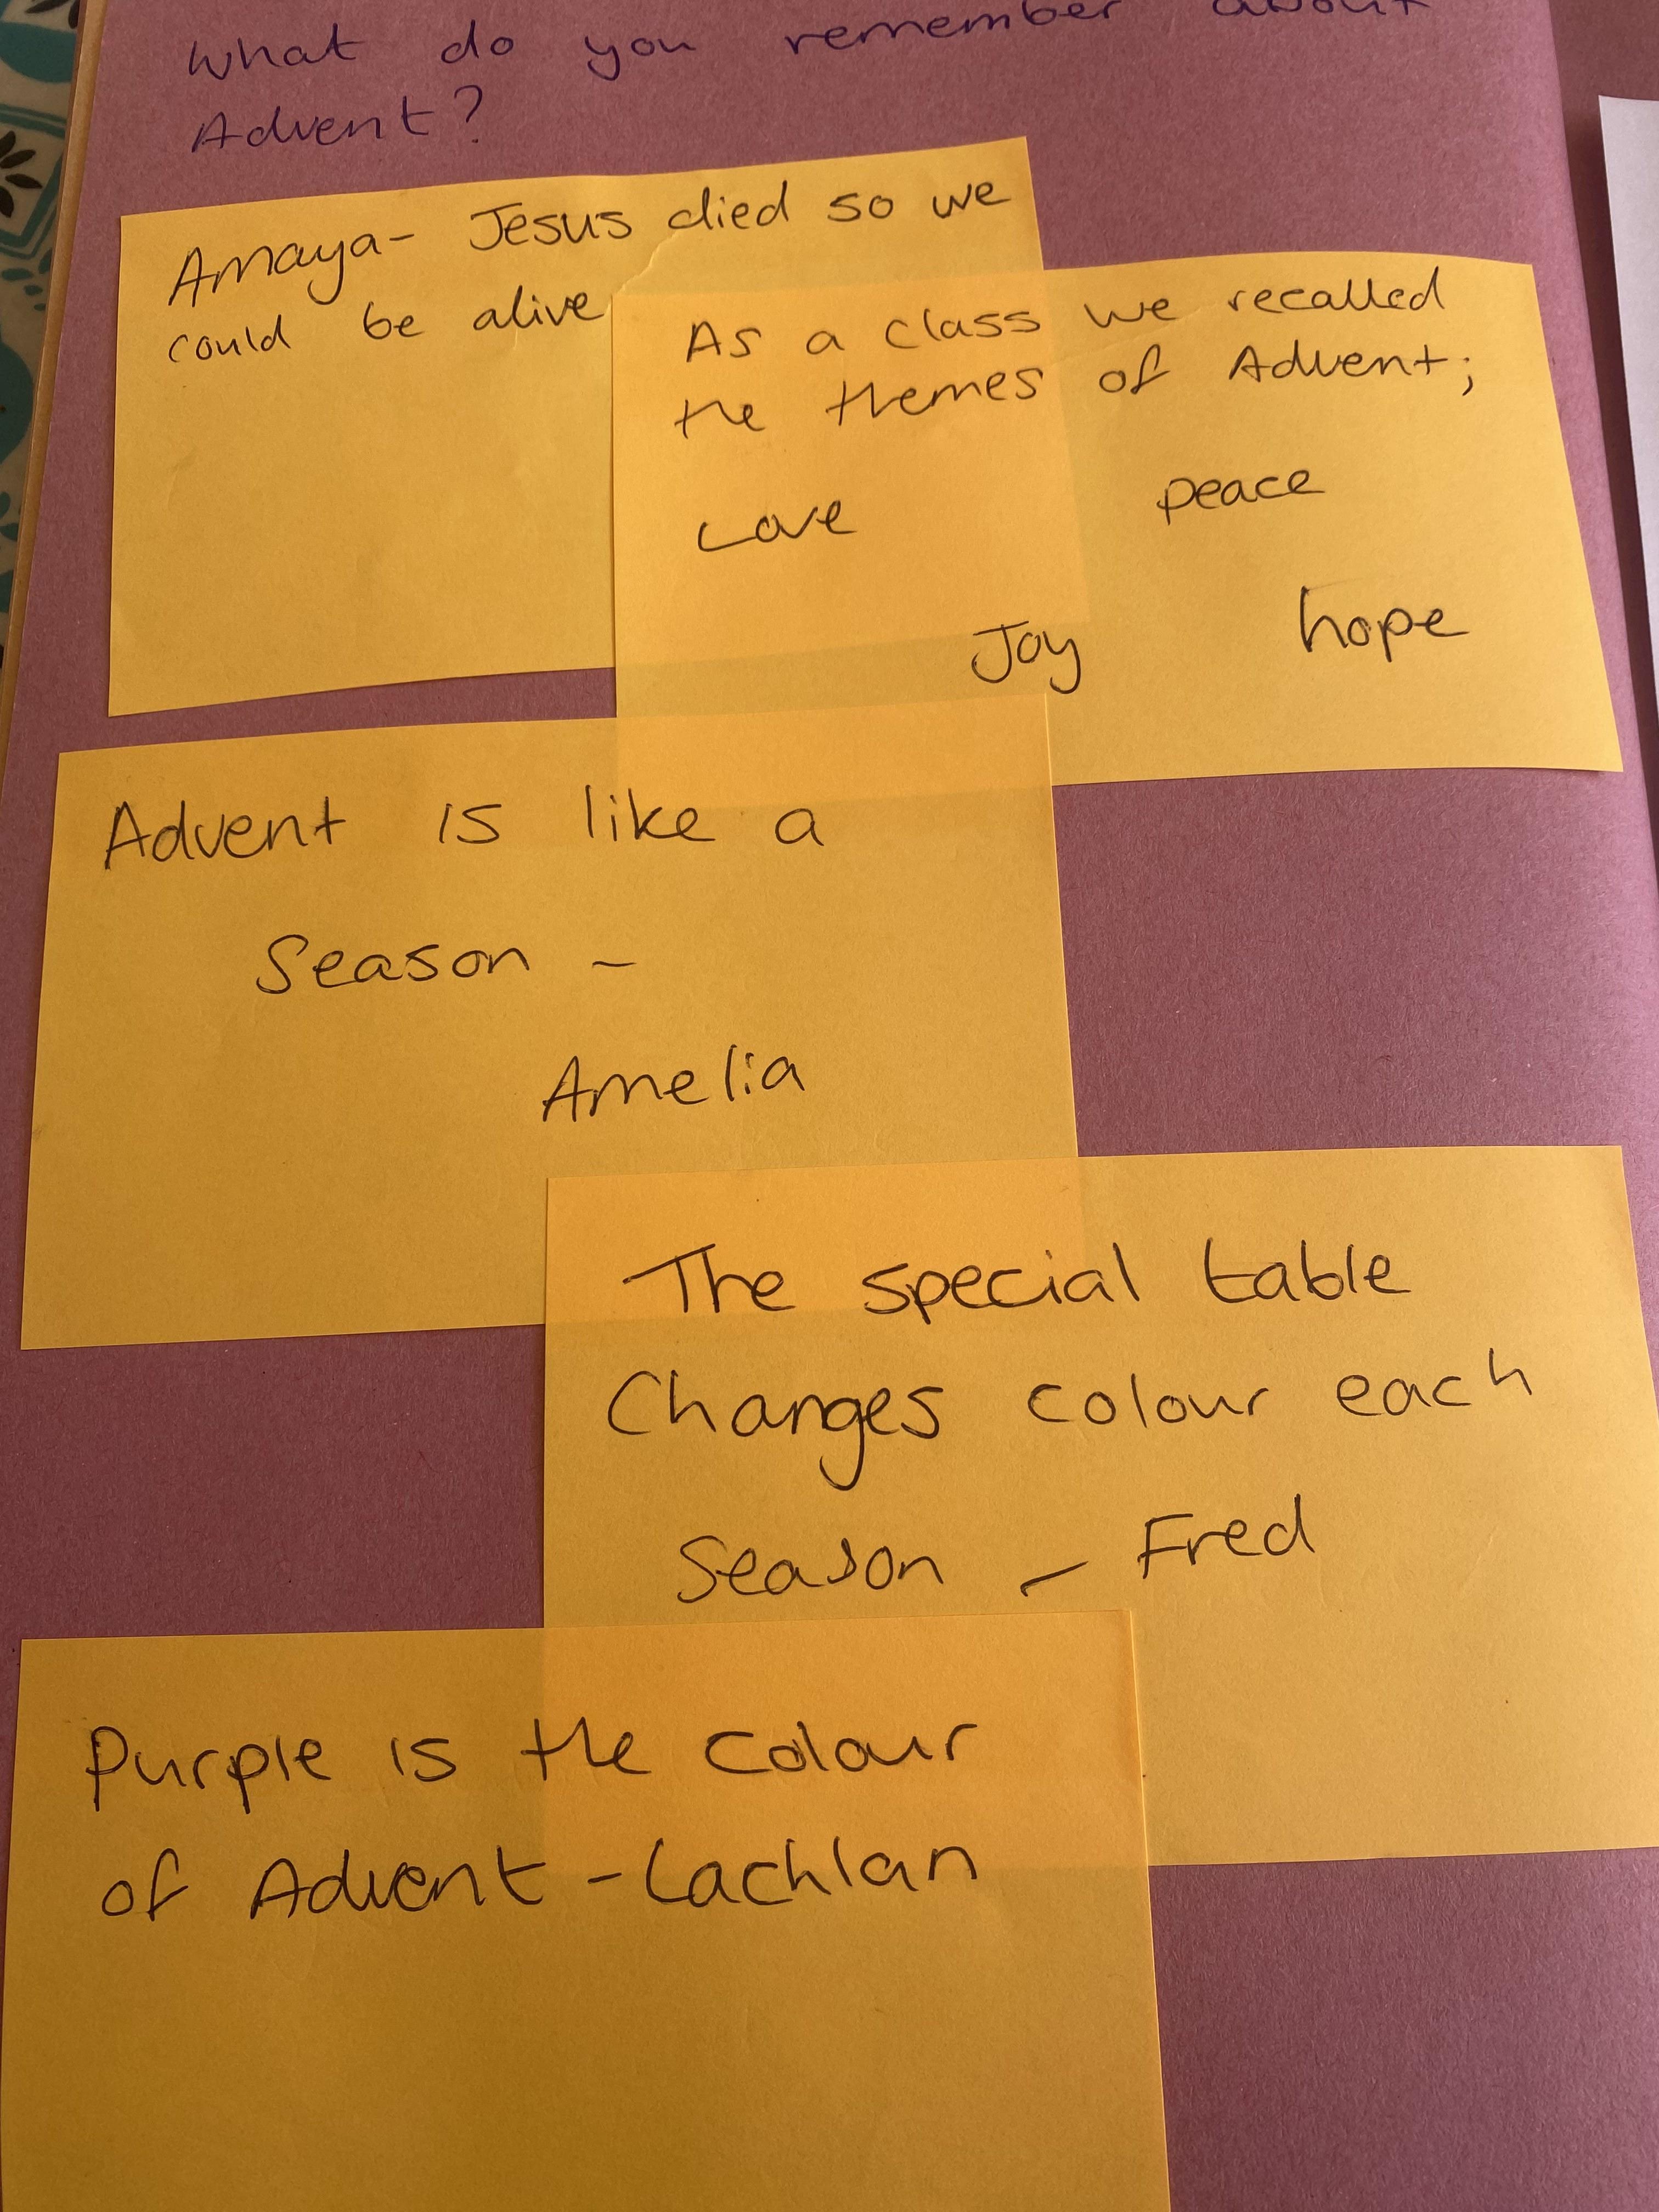 What do you remember about
Advent?
Amaya- Jesus died so we
could be alive
As a class we recalled
the themes of Advent;
Love peace
Joy hope
Advent is like a
Season -
Amelia
The special table
Changes colour each
Season - Fred
Purple is the colour
of Advent - Lachlan